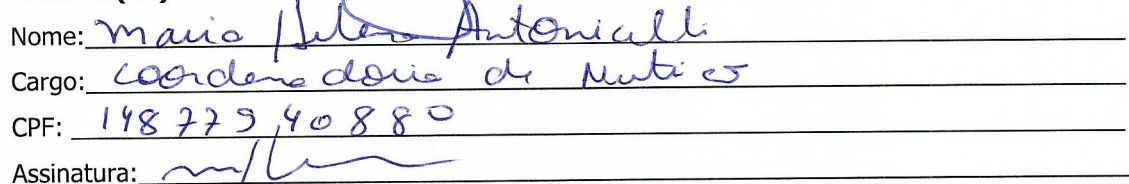 Nome: Maria Helena Antonicelli
Cargo: Coordenadoria de
CPF: 148 779 408 80
Assinatura: